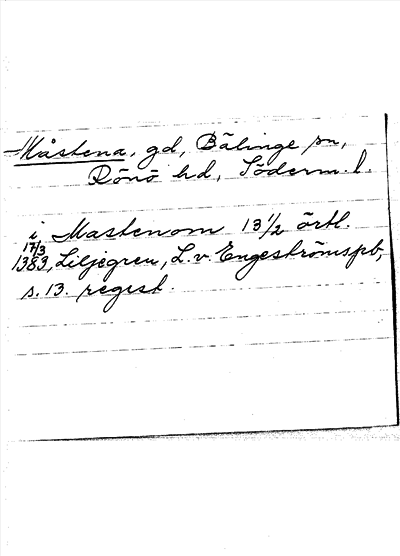 Måstena, gd, Bälinge sn,
Rönö hd, Söderm. l.
i Mastenom 13 1/2 örtl.
17/3
1383, Liljegren, L. v. Engeströms pb,
s. 13. regest.